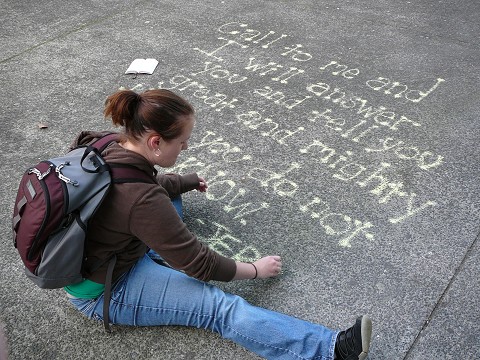 Call to me and
I will answer
you and tell you
great and mighty
you do not
know
JER